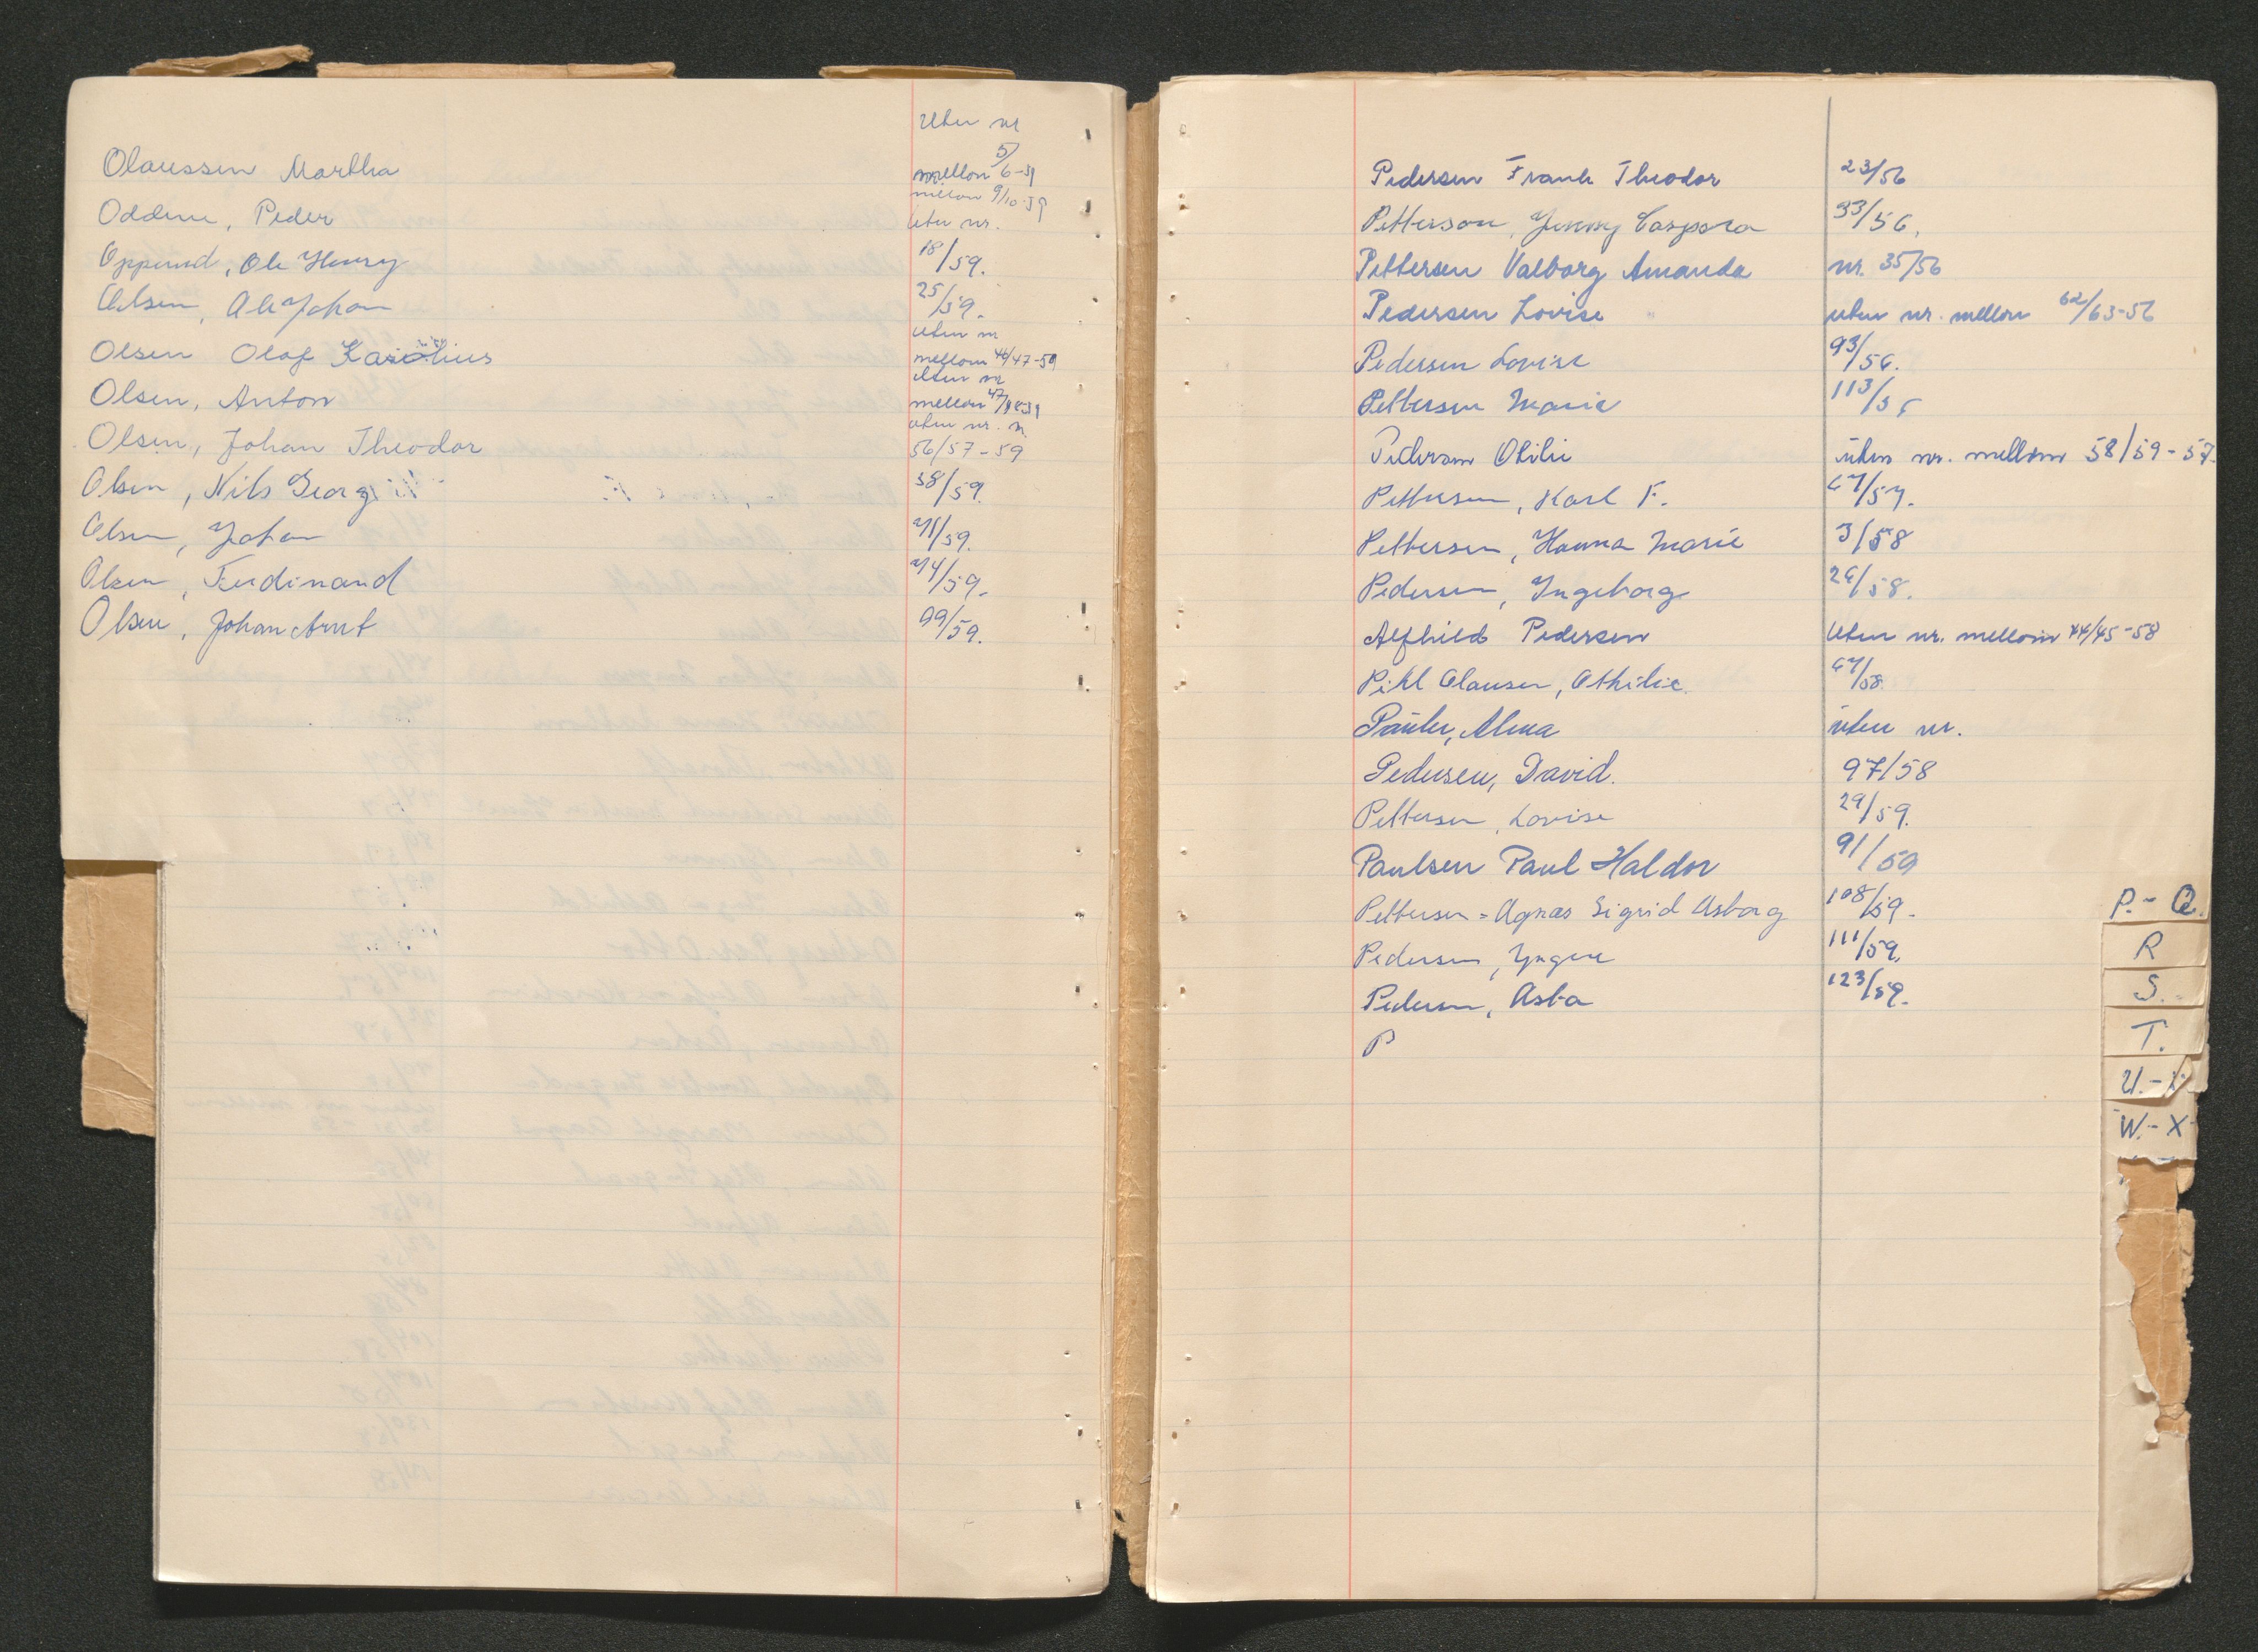 Uten nr
Olaussen Martha mellom 5/6-59
mellom 9/10-59
Oddene, Peder uten nr.
Oppund, Ole Henry 18/59.
Olsen, Ole Johan 25/59.
Uten nr
Olsen Olaf Karolius mellom 46/47-59
Uten nr
Olsen, Anton mellom 47/48-59
uten nr. m
Olsen, Johan Theodor 56/57-59
Olsen, Nils Georg 58/59.
Olsen, Johan 71/59.
Olsen, Ferdinand 74/59.
Olsen, Johan Arnt 99/59.
Pedersen Frank Theodor 23/56
Petterson, Jenny Caspara 33/56.
Pettersen Valborg Amanda nr. 35/56
Pedersen Lovise uten nr. mellom 62/63-56
Pedersen Lovise 93/56.
Pettersen Marie 113/56
Pedersen Otilie uten nr. mellom 58/59-57.
Pettersen, Karl F. 67/57.
Pettersen, Hanna Marie 3/58
Pedersen, Ingeborg 26/58.
Alfhild Pedersen Uten nr. mellom 44/45-58
Pihl Clausen, Othilie. 67/58
Alma uten nr.
Pedersen, David. 97/58
Pettersen, Lovise 29/59.
Paulsen Paul Haldor 91/59
Pettersen-Agnes Sigrid Asborg 108/59.
Pedersen, Yngve 111/59.
Pedersen, Asta 123/59.
P
P.-Q.
R
S.
T.
U.-V
W.-X